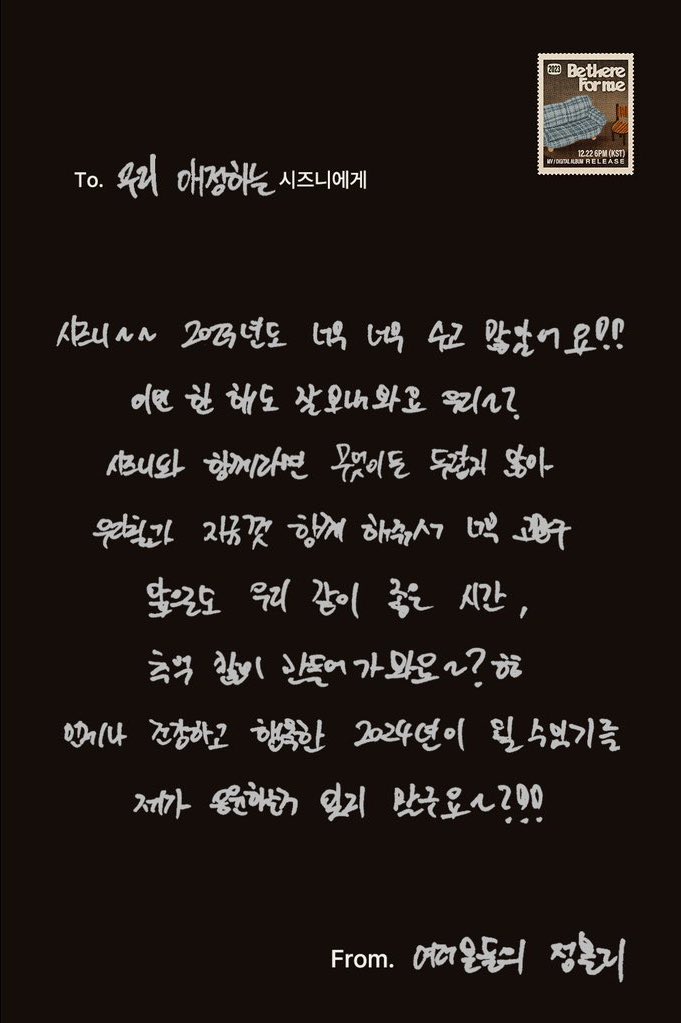 2023
Be there
For me
12.22 6PM (KST)
MV / DIGITAL ALBUM RELEASE
To. 우리 애정하는 시즈니에게
시즈니~~ 2023년도 너무 너무 수고 많았어요!!
이번 한 해도 잘 보내봐요 우리~?
시즈니와 함께라면 무엇이든 두렵지 않아
지금껏 함께 해줘서 너무
앞으로도 우리 같이 좋은 시간,
추억 많이 만들어가봐요~? ㅎㅎ
언제나 건강하고 행복한 2024년이 될 수 있기를
제가 잊지 말구요~?!!!
From. 여러분들의